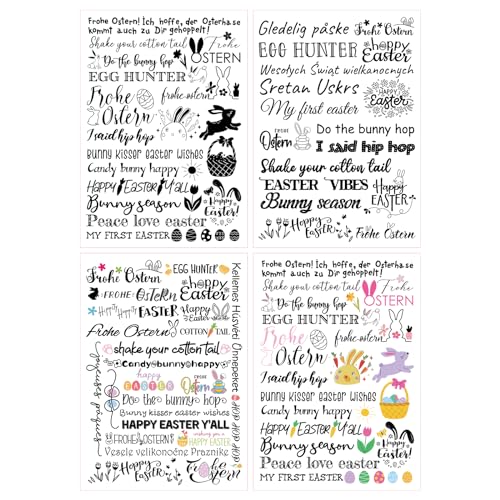 Frohe Ostern! Ich hoffe, der Osterhase
kommt auch zu Dir gehoppelt!
Shake your cotton tail
Frohe
OSTERN
Do the bunny hop
EGG HUNTER
Frohe
frohe ostern
Ostern
I said hip hop
Bunny kisser easter wishes
Candy bunny happy
HAPPY EASTER Y'ALL
Bunny season
Happy Easter!
Peace love easter
MY FIRST EASTER
Gledelig påske
Frohe Ostern
EGG HUNTER
happy
Easter
Wesołych Świąt wielkanocnych
Sretan Uskrs
Happy
EASTER
My first easter
FROHE
Ostern
Do the bunny hop
I said hip hop
Shake your cotton tail
EASTER VIBES
Happy
EASTER
Bunny season
Happy Easter
Frohe Ostern
Frohe Ostern
EGG HUNTER
happy
Easter
FROHE Ostern
EASTER
Happy
Easter
Frohe Ostern
COTTON TAIL
Kellemes Húsvéti Ünnepeket
HOP HOP HOP
shake your cotton tail
candy bunny happy
happy
EASTER
FROHE
Ostern
Doo the bunny hop
Bunny kisser easter wishes
HAPPY EASTER Y'ALL
FROHE OSTERN
HAPPY
EASTER
Vesele velikonočne Praznike
Happy Easter
Frohe
Ostern
Frohe Ostern! Ich hoffe, der Osterhase
kommt auch zu Dir gehoppelt!
Shake your cotton tail
Frohe
OSTERN
Do the bunny hop
EGG HUNTER
Frohe
frohe ostern
Ostern
I said hip hop
Bunny kisser easter wishes
Candy bunny happy
HAPPY EASTER Y'ALL
Bunny season
Happy Easter!
Peace love easter
MY FIRST EASTER